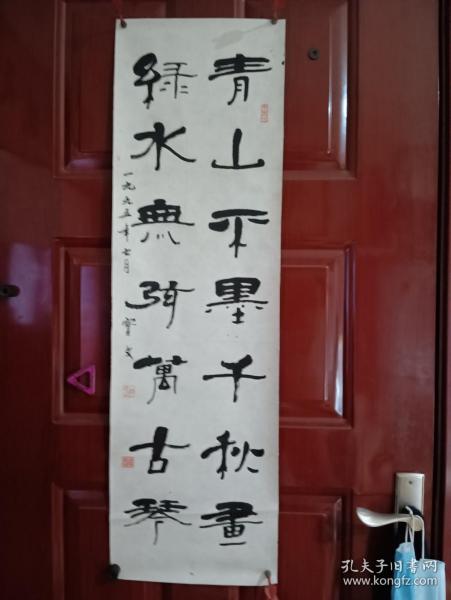 青山不墨千秋畫
綠水無弦萬古琴
一九九五年七月
孔夫子旧书网
www.kongfz.com